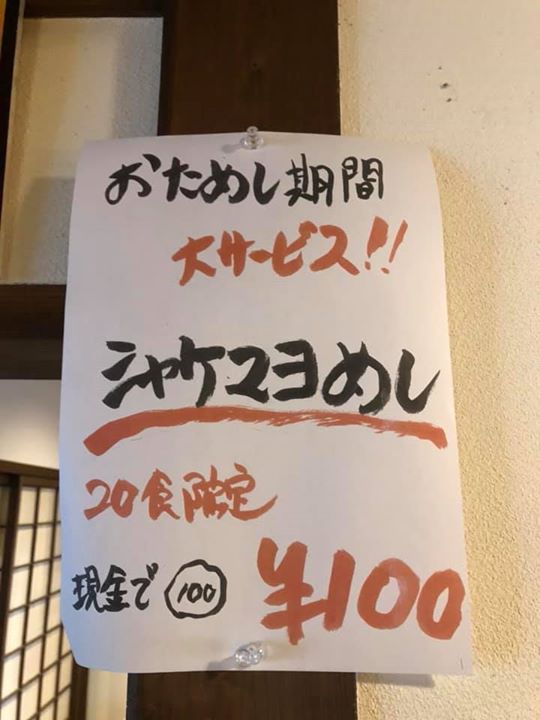 おためし期間
大サービス!!
シャケマヨめし
20食限定
現金で 100 ¥100